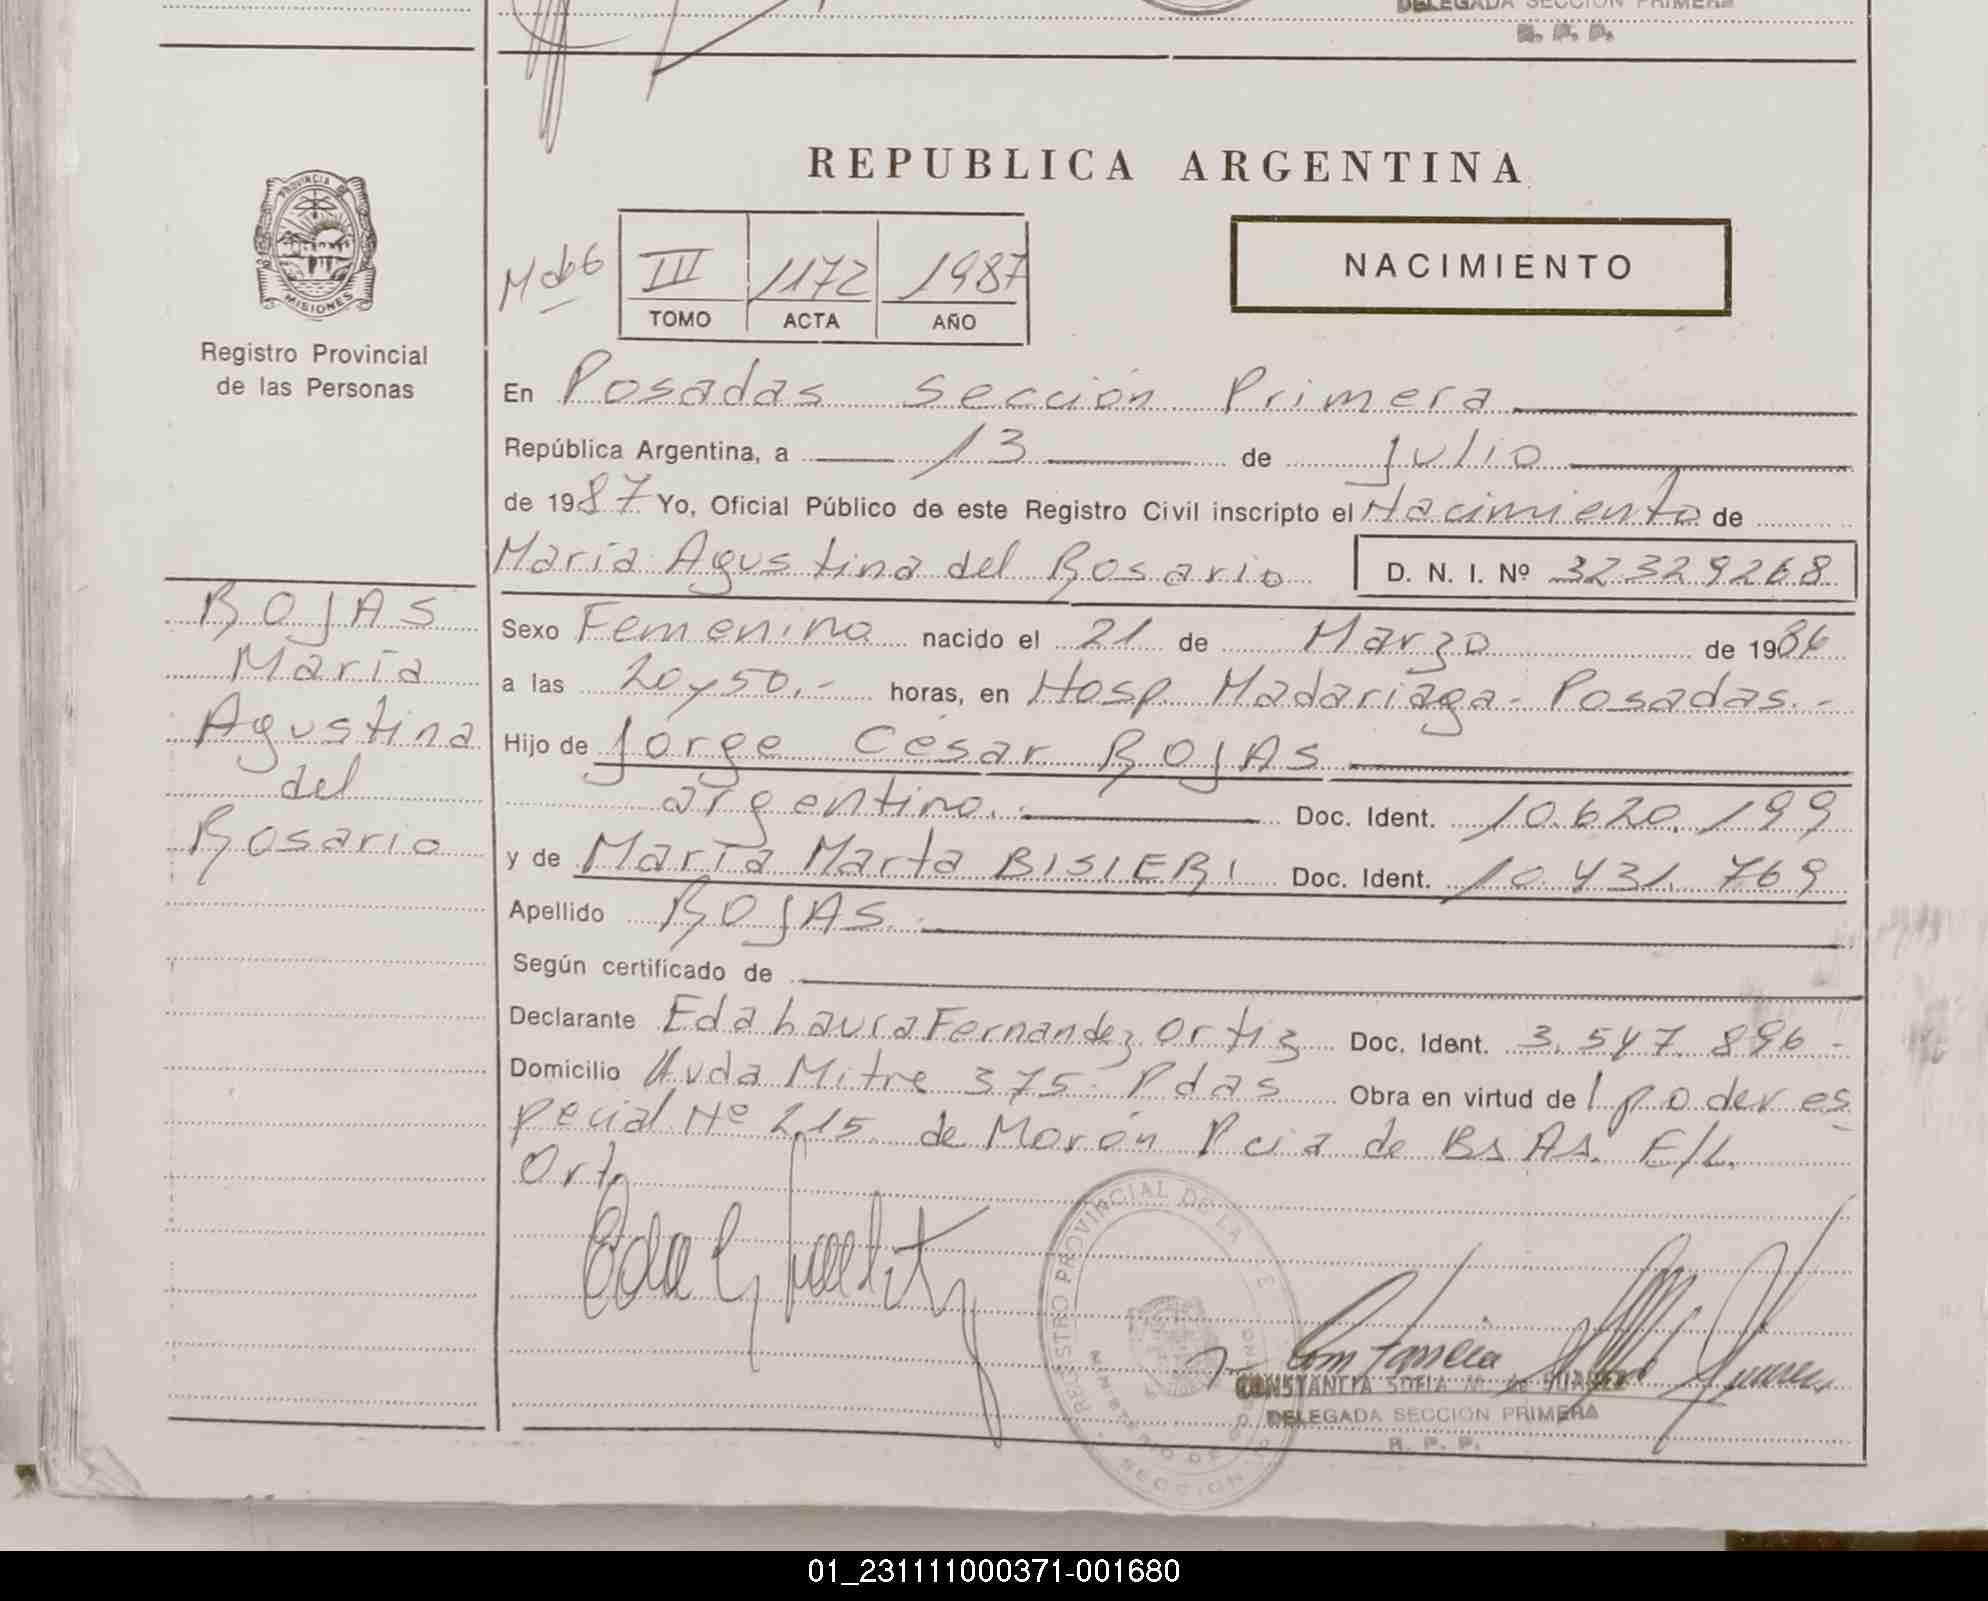 DELEGADA SECCION PRIMERA
R. P. P.
REPUBLICA ARGENTINA
PROVINCIA DE
MISIONES
Registro Provincial
de las Personas
III 1172 1987
TOMO ACTA AÑO
NACIMIENTO
En Posadas Sección Primera
República Argentina, a 13 de Julio
de 1987 Yo, Oficial Público de este Registro Civil inscripto el Nacimiento de
María Agustina del Rosario D. N. I. Nº 32329268
ROJAS
María
Agustina
del
Rosario
Sexo Femenino nacido el 21 de Marzo de 1986
a las 20y50.- horas, en Hosp. Madariaga - Posadas.-
Hijo de Jorge César ROJAS
argentino. Doc. Ident. 10.620.199
y de María Marta BISIERI Doc. Ident. 10.431.769
Apellido ROJAS.
Según certificado de
Declarante Eda Laura Fernandez Ortiz Doc. Ident. 3.547.896-
Domicilio Avda Mitre 375- Pdas Obra en virtud de 1 poder es
pecial Nº 215 de Morón Pcia de Bs As. E/L.
Ort.
REGISTRO PROVINCIAL DE LA
MINISTERIO DE
SECCION
CONSTANCIA SOFIA M. de SUAREZ
DELEGADA SECCION PRIMERA
R. P. P.
01_231111000371-001680